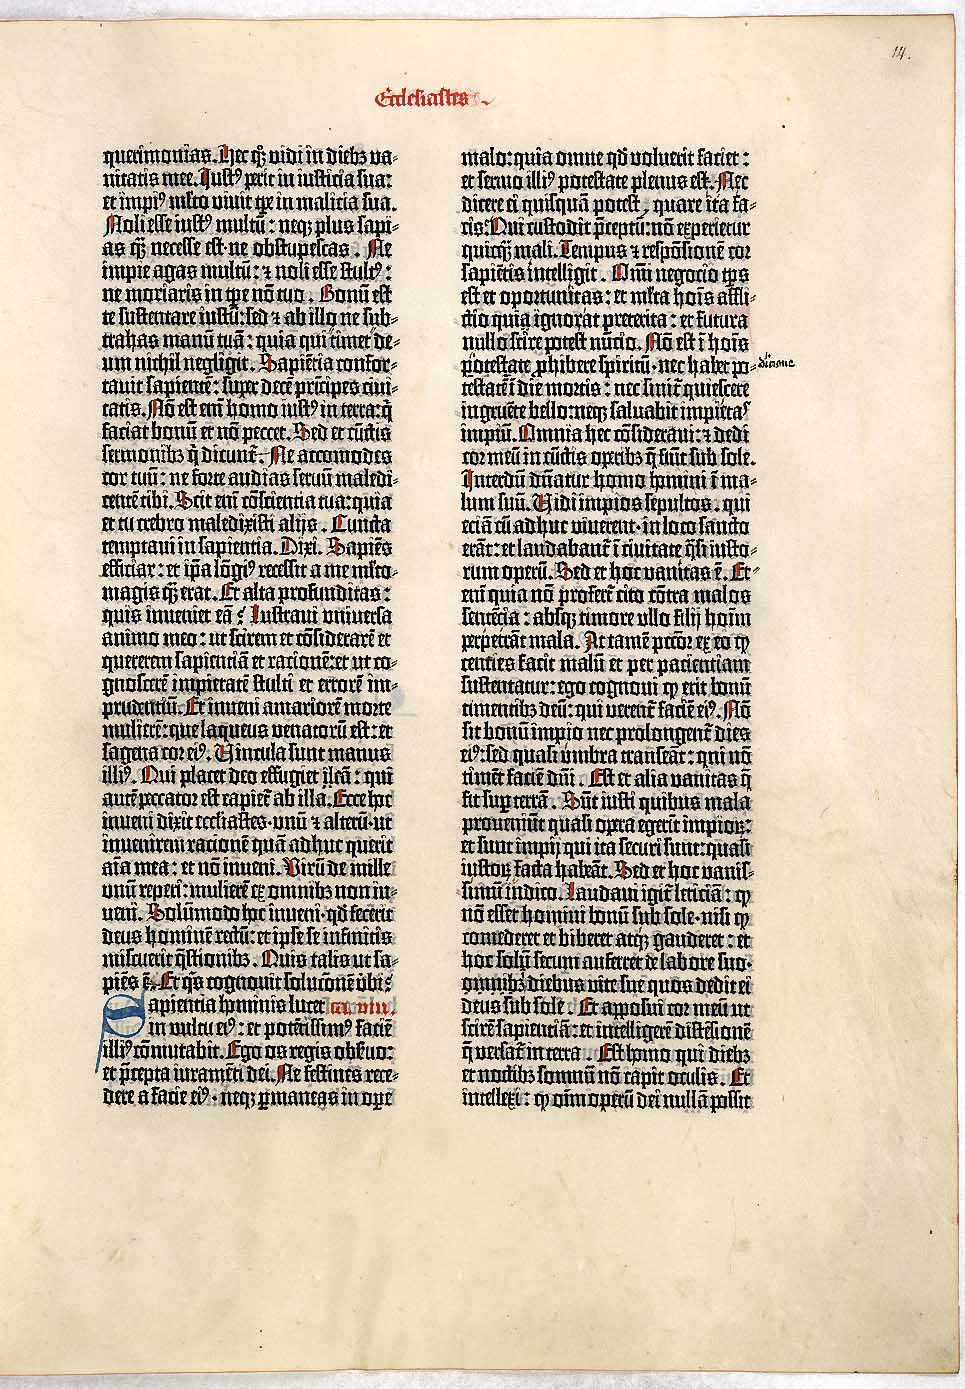 14.
Ecclesiastes
querimonias. Hec qꝫ vidi in diebꝫ va-
nitatis mee. Iustꝰ perit in iusticia sua:
et impiꝰ mĺto vivit tp̄e in malicia sua.
Noli esse iustꝰ multū: neqꝫ plus sapi-
as qꝫ̄ necesse est ne obstupescas. Ne
impie agas multū: ⁊ noli esse stultꝰ:
ne moriaris in tp̄e nō tuo. Bonū est
te sustentare iustū: sed ⁊ ab illo ne sub-
trahas manū tuā: quia qui timet de-
um nichil negligit. Sapiētia confor-
tavit sapientē: super decē prīcipes civi-
tatis. Nō est eni̅ homo iustꝰ in terra: q̄
faciat bonū et nō peccet. Sed et cūctis
sermonibꝫ q̄ dicunt̄. Ne accomodes
cor tuū: ne forte audias servū maledi-
centē tibi. Scit eni̅ cōscientia tua: quia
et tu crebro maledixisti alijs. Cuncta
temptavi in sapientia. Dixi. Sapiēs
efficiar: et ip̄a lōgiꝰ recessit a me mĺto-
magis qꝫ̄ erat. Et alta profunditas:
quis inveniet eā? Iustravi vniversa
animo meo: ut scirem et cōsiderarē et
quererem sapientiā et racionē: et ut co-
gnoscerē impietatē stulti et errorē im-
prudentiū. Et inveni amariorē morte
mulierē: que laqueus venatorū est: et
sagena cor eiꝰ. Vincula sunt manus
illiꝰ. Qui placet deo effugiet illā: qui
autē peccator est capiet̄ ab illa. Ecce hoc
inveni dixit ecclīastes· vnū ⁊ alterū· ut
invenirem racionē quā adhuc querit
aīa mea: et nō inveni. Virū de mille
vnū reperi: mulierē ex omnibꝫ non in-
veni. Solūmodo hoc inveni· qđ fecerit
deus hominē rectū: et ipse se infinitis
miscuerit q̄stionibꝫ. Quis talis ut sa-
piēs ē. Et q̄s cognovit solucionē v̄bi?
Sapientia hominis lucet ca. viii.
in vultu eiꝰ: et potētissimꝰ faciē
illiꝰ cōmutabit. Ego os regis obẜvo:
et p̄cepta iuramēti dei. Ne festines rece-
dere a facie eiꝰ· neqꝫ ꝑmaneas in oꝑe
malo: quia omne qđ voluerit faciet:
et sermo illiꝰ potestate plenus est. Nec
dicere ei quisquā potest, quare ita fa-
cis: Qui custodit p̄ceptū: nō experietur
quicqꝫ̄ mali. Tempus ⁊ respōsionē cor
sapiētis intelligit. Omi̅ negocio tp̄s
est et oportunitas: et mĺta hoīs affli-
ctio quia ignorat preterita: et futura
nullo scire potest nūcio. Nō est ī hoīs
potestate ꝓhibere spiritū· nec habet po- dicione
testatē ī die mortis: nec sinit̄ quiescere
ingruēte bello: neqꝫ salvabit impietas
impiū. Omnia hec cōsideravi: ⁊ dedi
cor meū in cūctis operibꝫ q̄ fiūt sub sole.
Interdū dn̄atur homo homini ī ma-
lum suū. Vidi impios sepultos. qui
eciā cū adhuc viverent· in loco sancto
erāt: et laudabant̄ ī civitate q̄si iusto-
rum operū. Sed et hoc vanitas ē. Et-
eni̅ quia nō profert̄ cito cōtra malos
sentēcia: absqꝫ timore ullo filij hoīm
perpetrāt mala. At tamē pctōr ex eo ꝙ
centies facit malū et per pacientiam
sustentatur: ego cognovi ꝙ erit bonū
timentibꝫ deū: qui verent̄ faciē eiꝰ. Nō
sit bonū impio nec prolongent̄ dies
eiꝰ: sed quasi vmbra transeāt: qui nō
timēt faciē dn̄i. Est et alia vanitas q̄
fit suꝑ terrā. Sūt iusti quibus mala
proveniūt quasi opera egerīt impioꝝ:
et sunt impij qui ita securi sunt: quasi
iustoꝝ facta habeāt. Sed et hoc vanis-
simū iudico. Laudavi igit̄ leticiā: ꝙ
nō esset homini bonū sub sole· nisi ꝙ
comederet et biberet atqꝫ gauderet: et
hoc solū secum auferret de labore suo·
omnibꝫ diebus vite sue quos dedit ei
deus sub sole. Et apposui cor meū ut
scirē sapientiā: et intelligerē distēsionē
q̄ versat̄ in terra. Est homo qui diebꝫ
et noctibꝫ somnū nō capit oculis. Et
intellexi: ꝙ oīm operū dei nullā possit